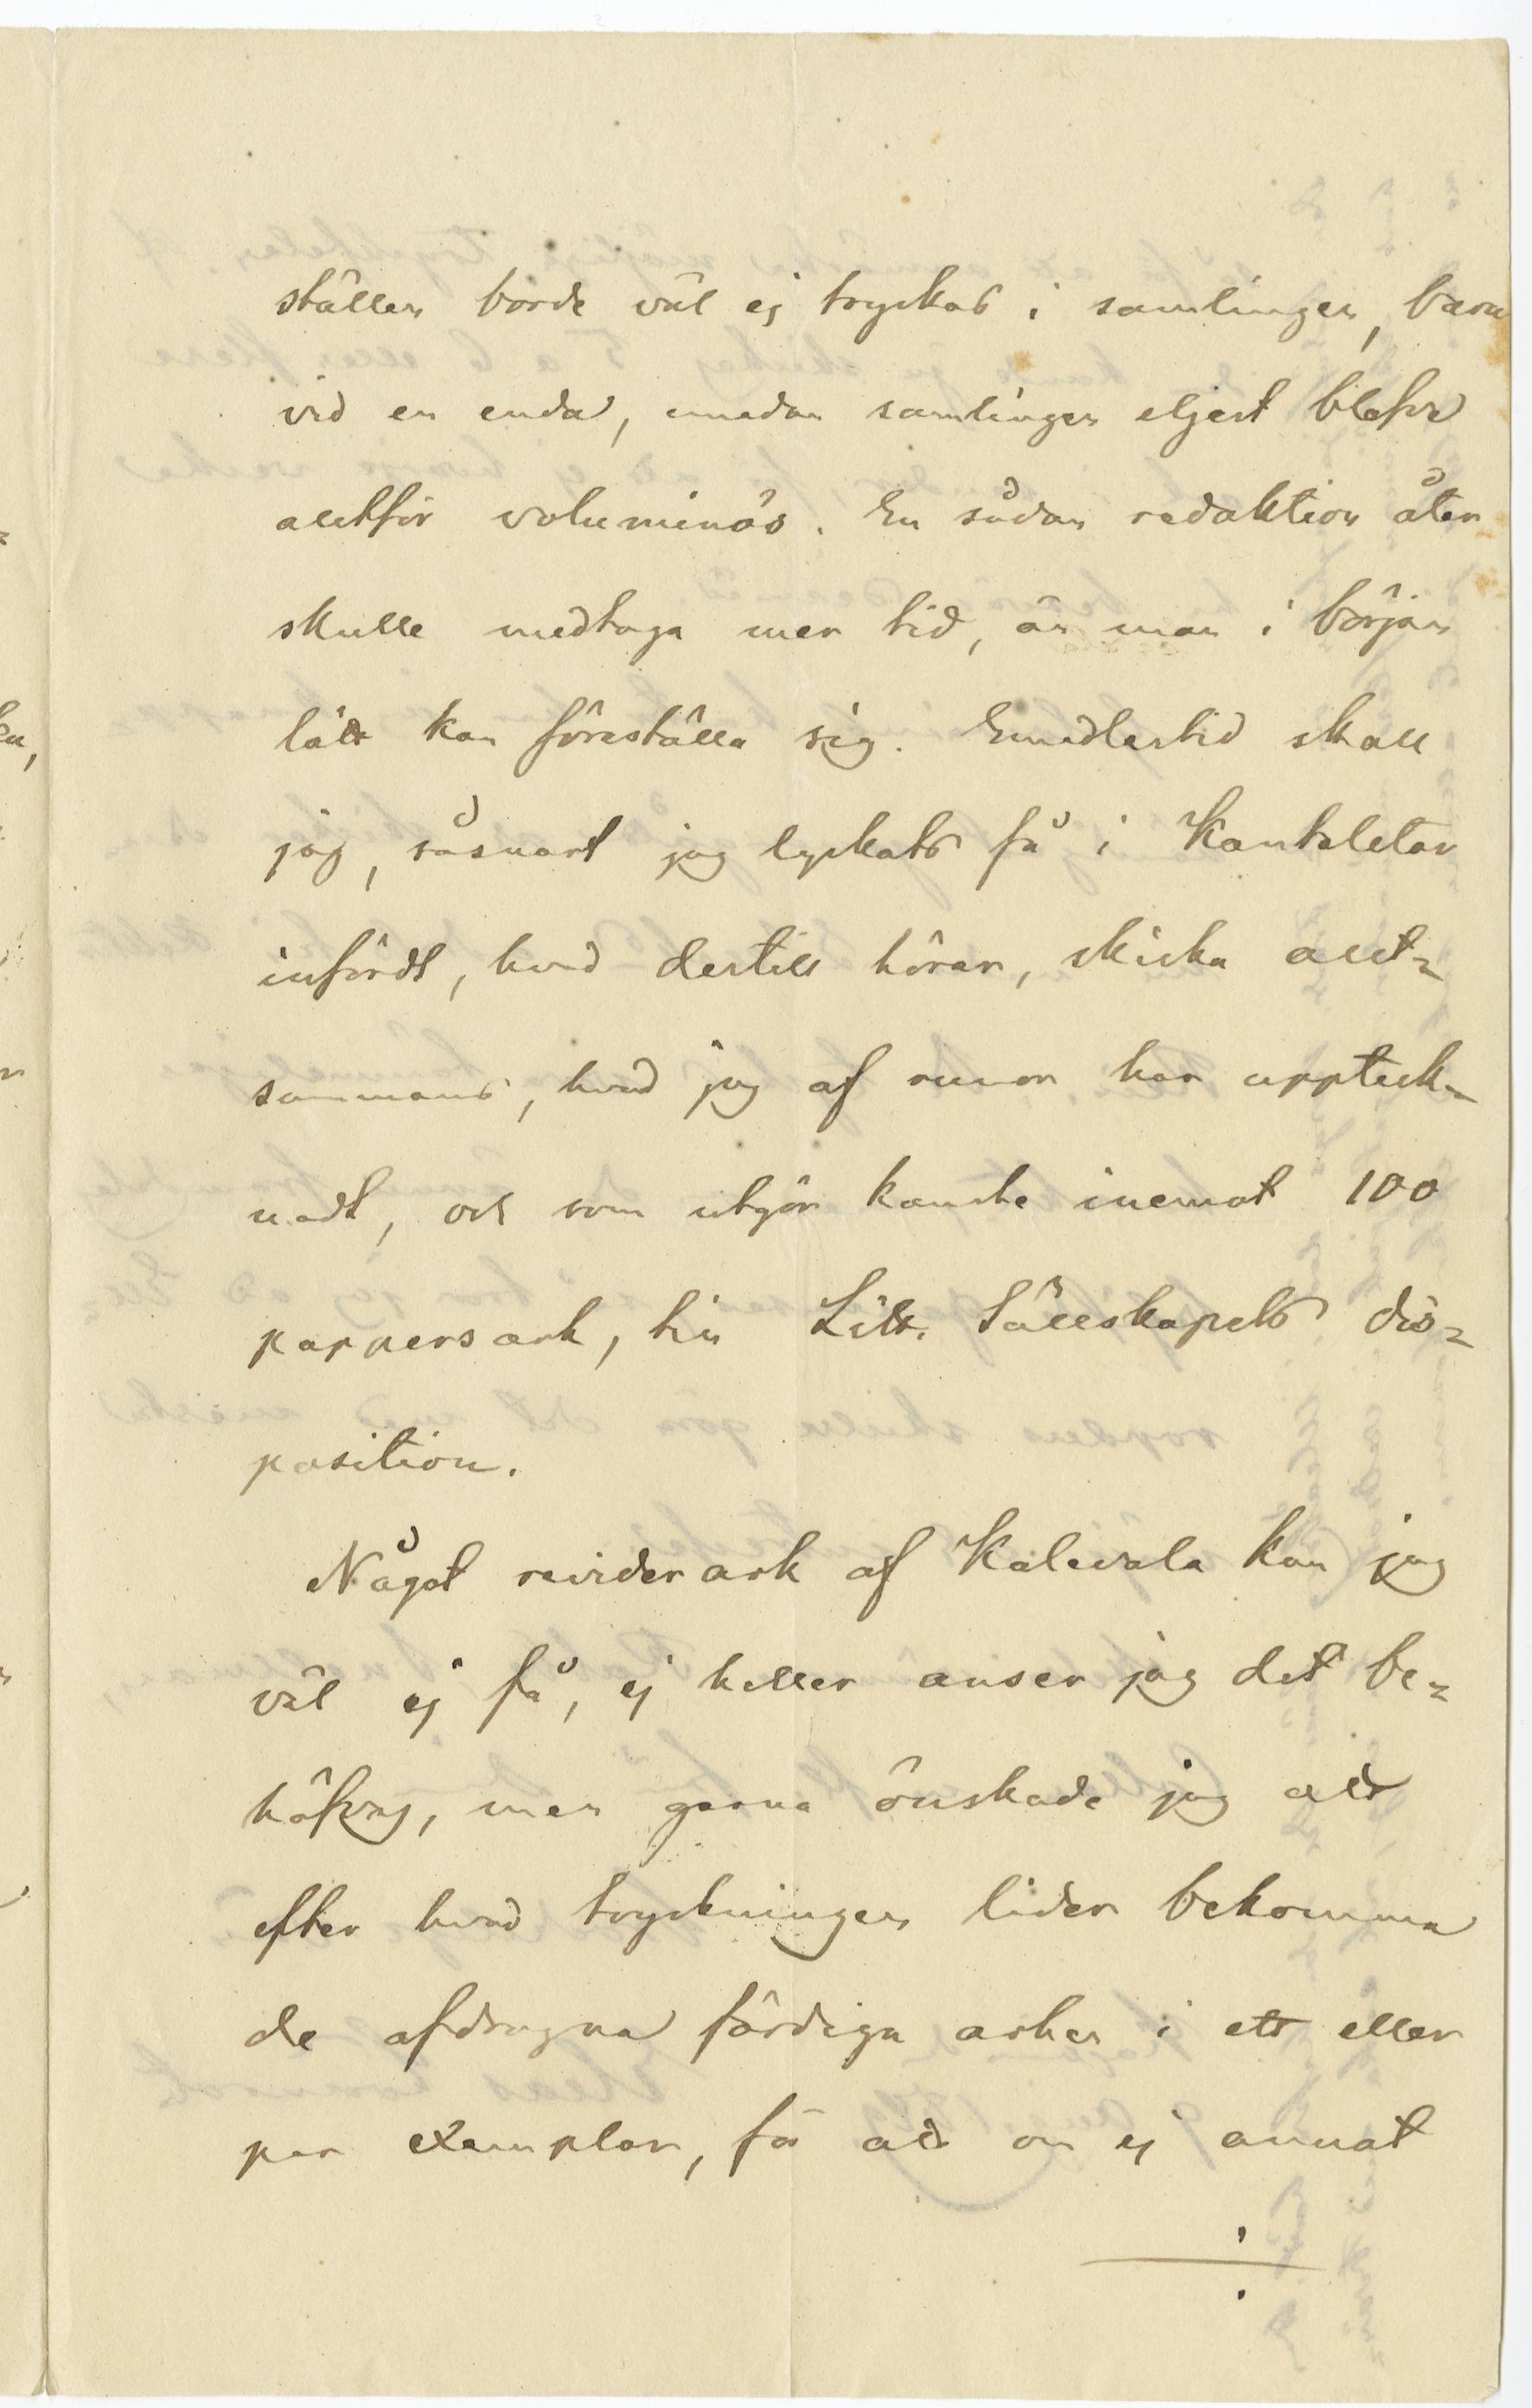 ställen borde väl ej tryckas i samlingen, bara
vid en enda, emedan samlingen eljest blefve
alltför voluminös. En sådan redaktion åter
skulle medtaga mer tid, än man i början
lätt kan föreställa sig. Emedlertid skall
jag, såsnart jag lyckats få i Kanteletar
infördt, hvad dertill hörer, skicka allt-
sammans, hvad jag af runor har uppteck-
nadt, och som utgör kanske inemot 100
pappersark, till Litt. Sällskapets dis-
position.
Något reviderark af Kalevala kan jag
väl ej få, ej heller anser jag det be-
höfvas, men gerna önskade jag att
efter hvad tryckningen lider bekomma
de afdragna färdiga arken i ett eller
par exemplar, för att om ej annat
./.